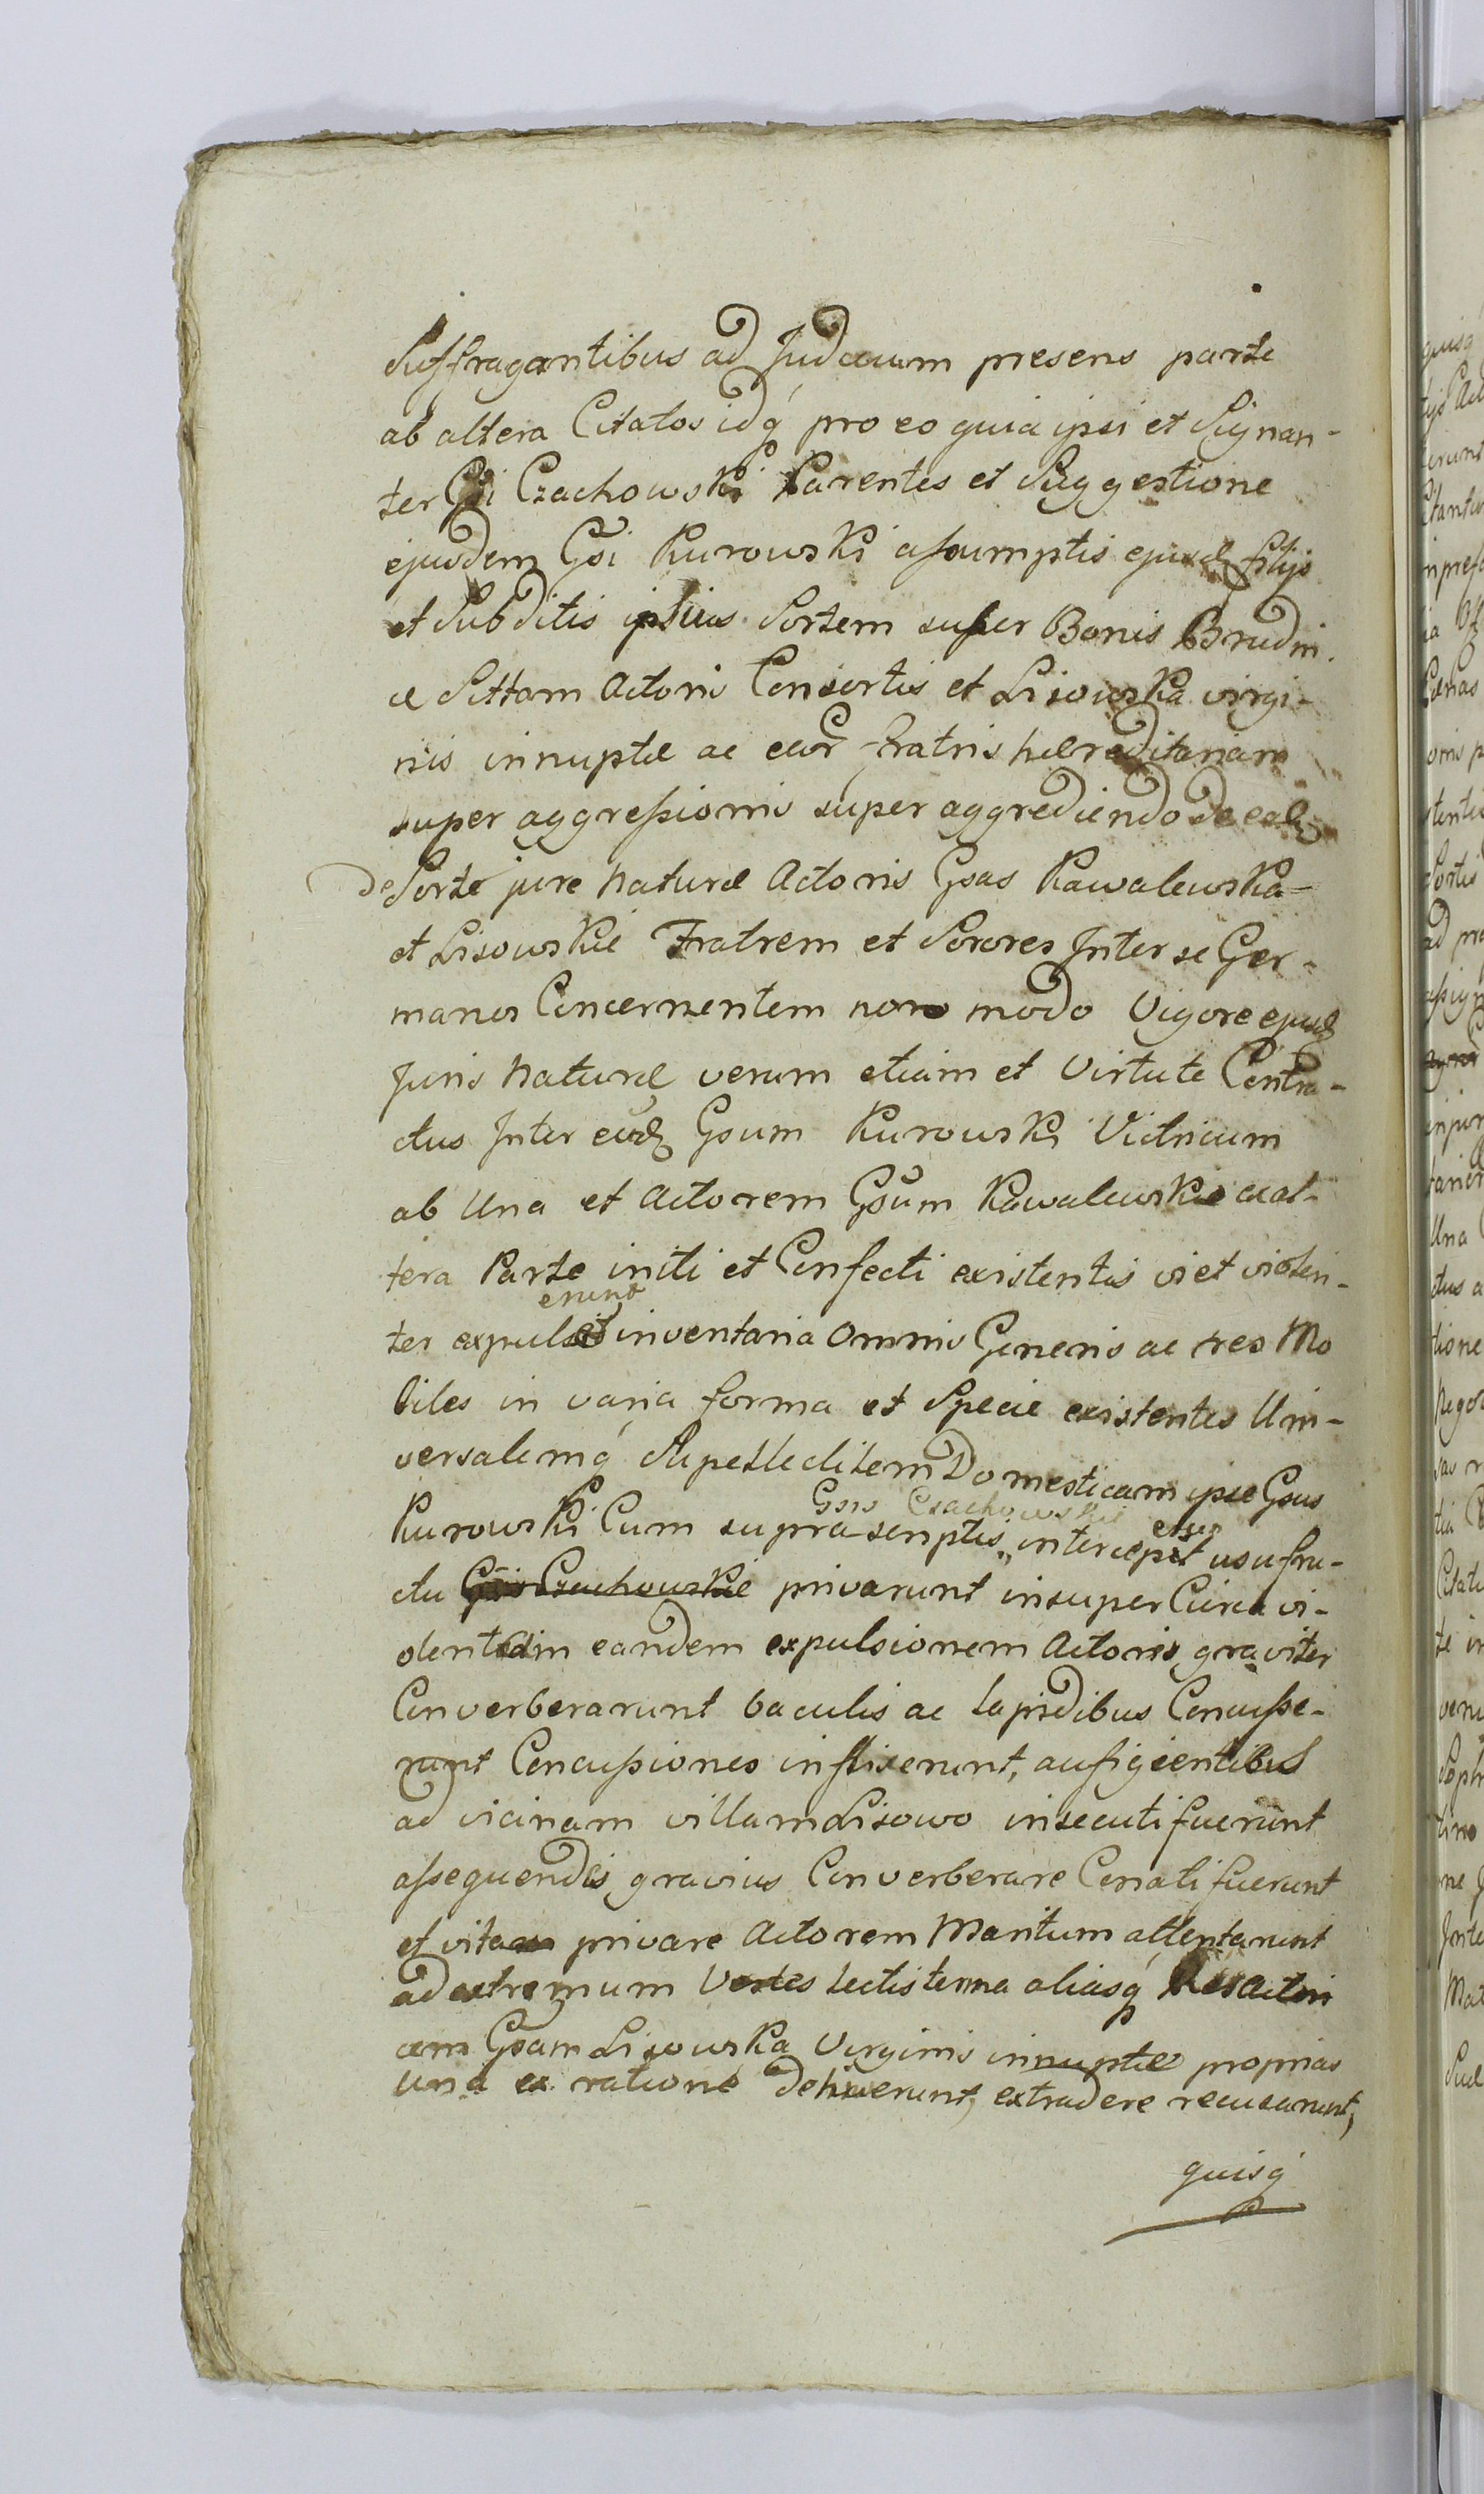 Suffragantibus ad Judicium presens parte
ab altera Citatos idq́ pro eo quia ipsi et Signan-
ter Gsi Czachowski Parentes et Suggestione
ejusdem Gsi Kurowski assumptis ejusd filijs
et Subditis ipsius Sortem super Bonis Brudni-
ce Sittam Actoris Consortis et Lisowska virgi-
nis innuptæ ac eor fratris hæreditariam
super aggressionis super aggrediendo de ead
de Sorte jure naturæ Actoris Gsas Kawalewska
et Lisowskie Fratrem et Sorores Inter se Ger-
manos Concernentem non modo Vigore ejusd
Juris naturæ verum etiam et Virtute Contra-
ctus Inter eund Gsum Kurowski Vitricum
ab Una et Actorem Gsum Kawalewskie ac al-
tera Parte initi et Confecti existentis vi et violen-
erunt
ter expuls inventaria Omnis Generis ac res Mo
biles in varia forma et Specie existentes Uni-
versalemq́ Supellectilem Domesticam ipse Gsus
Gsis Czachowskie
Kurowski Cum supra scriptis intercepit usufru-
ctu Gsis Czachowskie privarunt insuper Circa vi-
olentam eandem expulsionem Actoris graviter
Converberarunt baculis ac lapidibus Concusse-
runt Concussiones inflixerunt, aufigientibus
ad vicinam villam Lisowo insecuti fuerunt
assequendis gravius Converberare Conati fuerunt
et vita privare Actorem Maritum attentarunt
ad extremum Vestes lectisternia aliasq́ Res Actri
cem Gsam Lisowska Virginis innuptæ proprias
Una ex ratione detinuerunt, extradere recusarunt,
quisq́